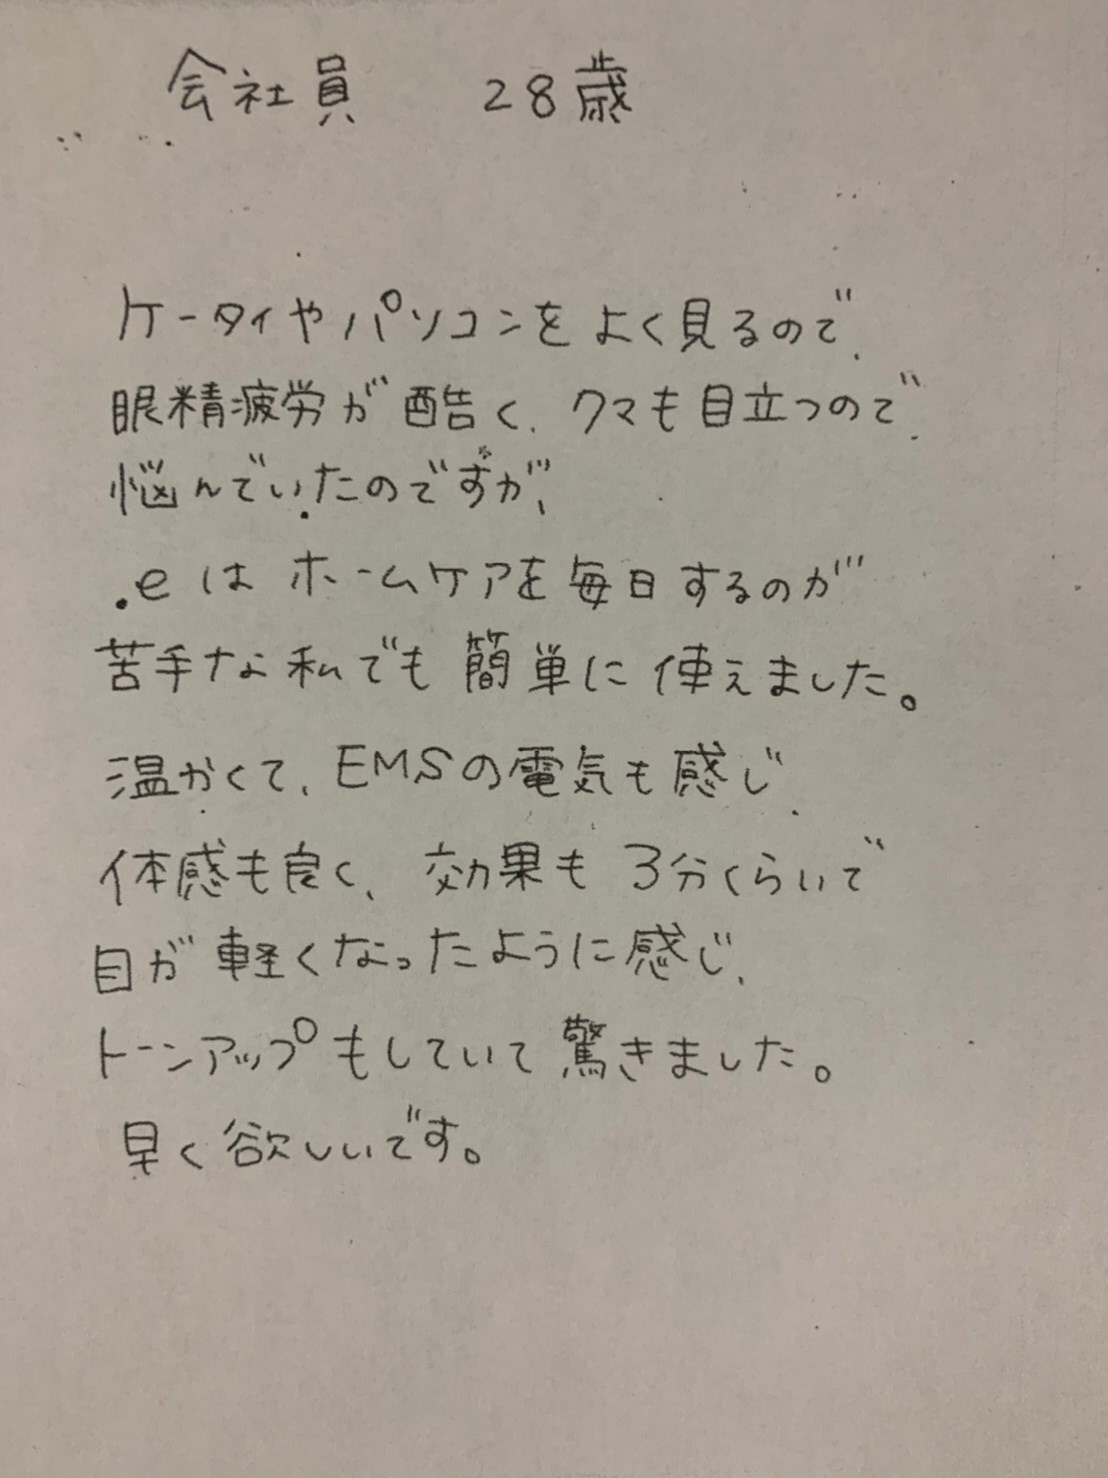 会社員 28歳
ケータイやパソコンをよく見るので、
眼精疲労が酷く、クマも目立つので、
悩んでいたのですが、
.eはホームケアを毎日するのが
苦手な私でも簡単に使えました。
温かくて、EMSの電気も感じ、
体感も良く、効果も3分くらいで
目が軽くなったように感じ、
トーンアップもしていて驚きました。
早く欲しいです。